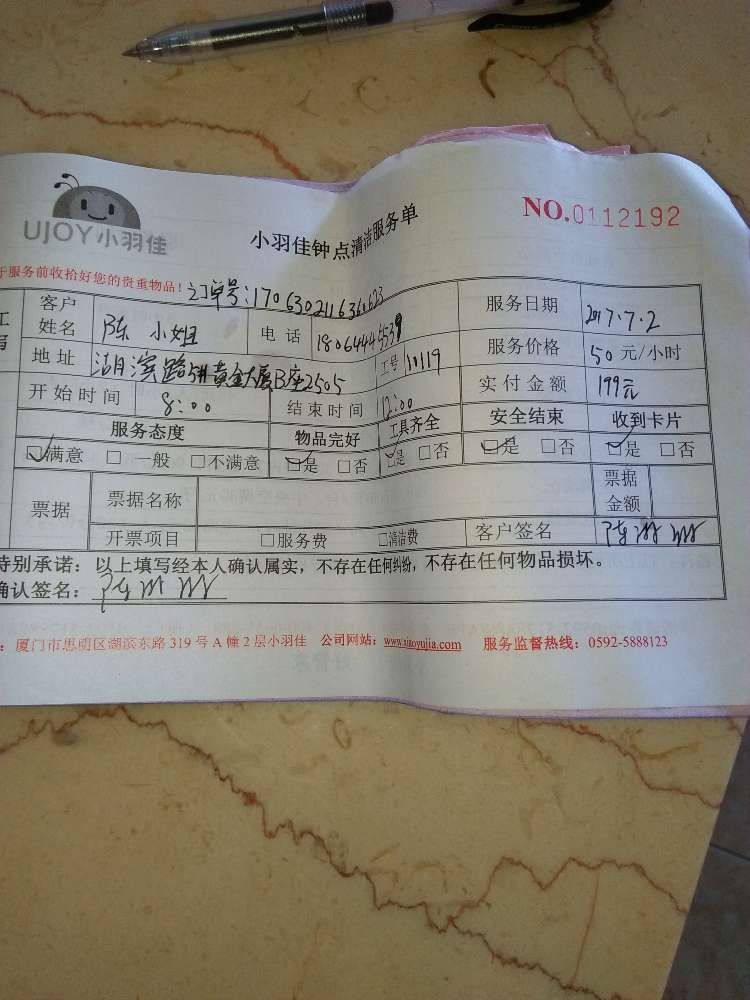 UJOY小羽佳
小羽佳钟点清洁服务单
NO.0112192
于服务前收拾好您的贵重物品!
订单号:170630211636623
客户姓名 陈小姐 电话 服务日期 2017.7.2
地址 工号 10119 服务价格 50元/小时
开始时间 8:00 结束时间 12:00 实付金额 199元
服务态度 物品完好 工具齐全 安全结束 收到卡片
☑满意 □一般 □不满意 ☑是 □否 ☑是 □否 ☑是 □否 ☑是 □否
票据 票据名称 票据金额
开票项目 □服务费 □清洁费 客户签名
特别承诺:以上填写经本人确认属实,不存在任何纠纷,不存在任何物品损坏。
确认签名:
厦门市思明区湖滨东路319号A幢2层小羽佳 公司网站:www.xiaoyujia.com 服务监督热线:0592-5888123